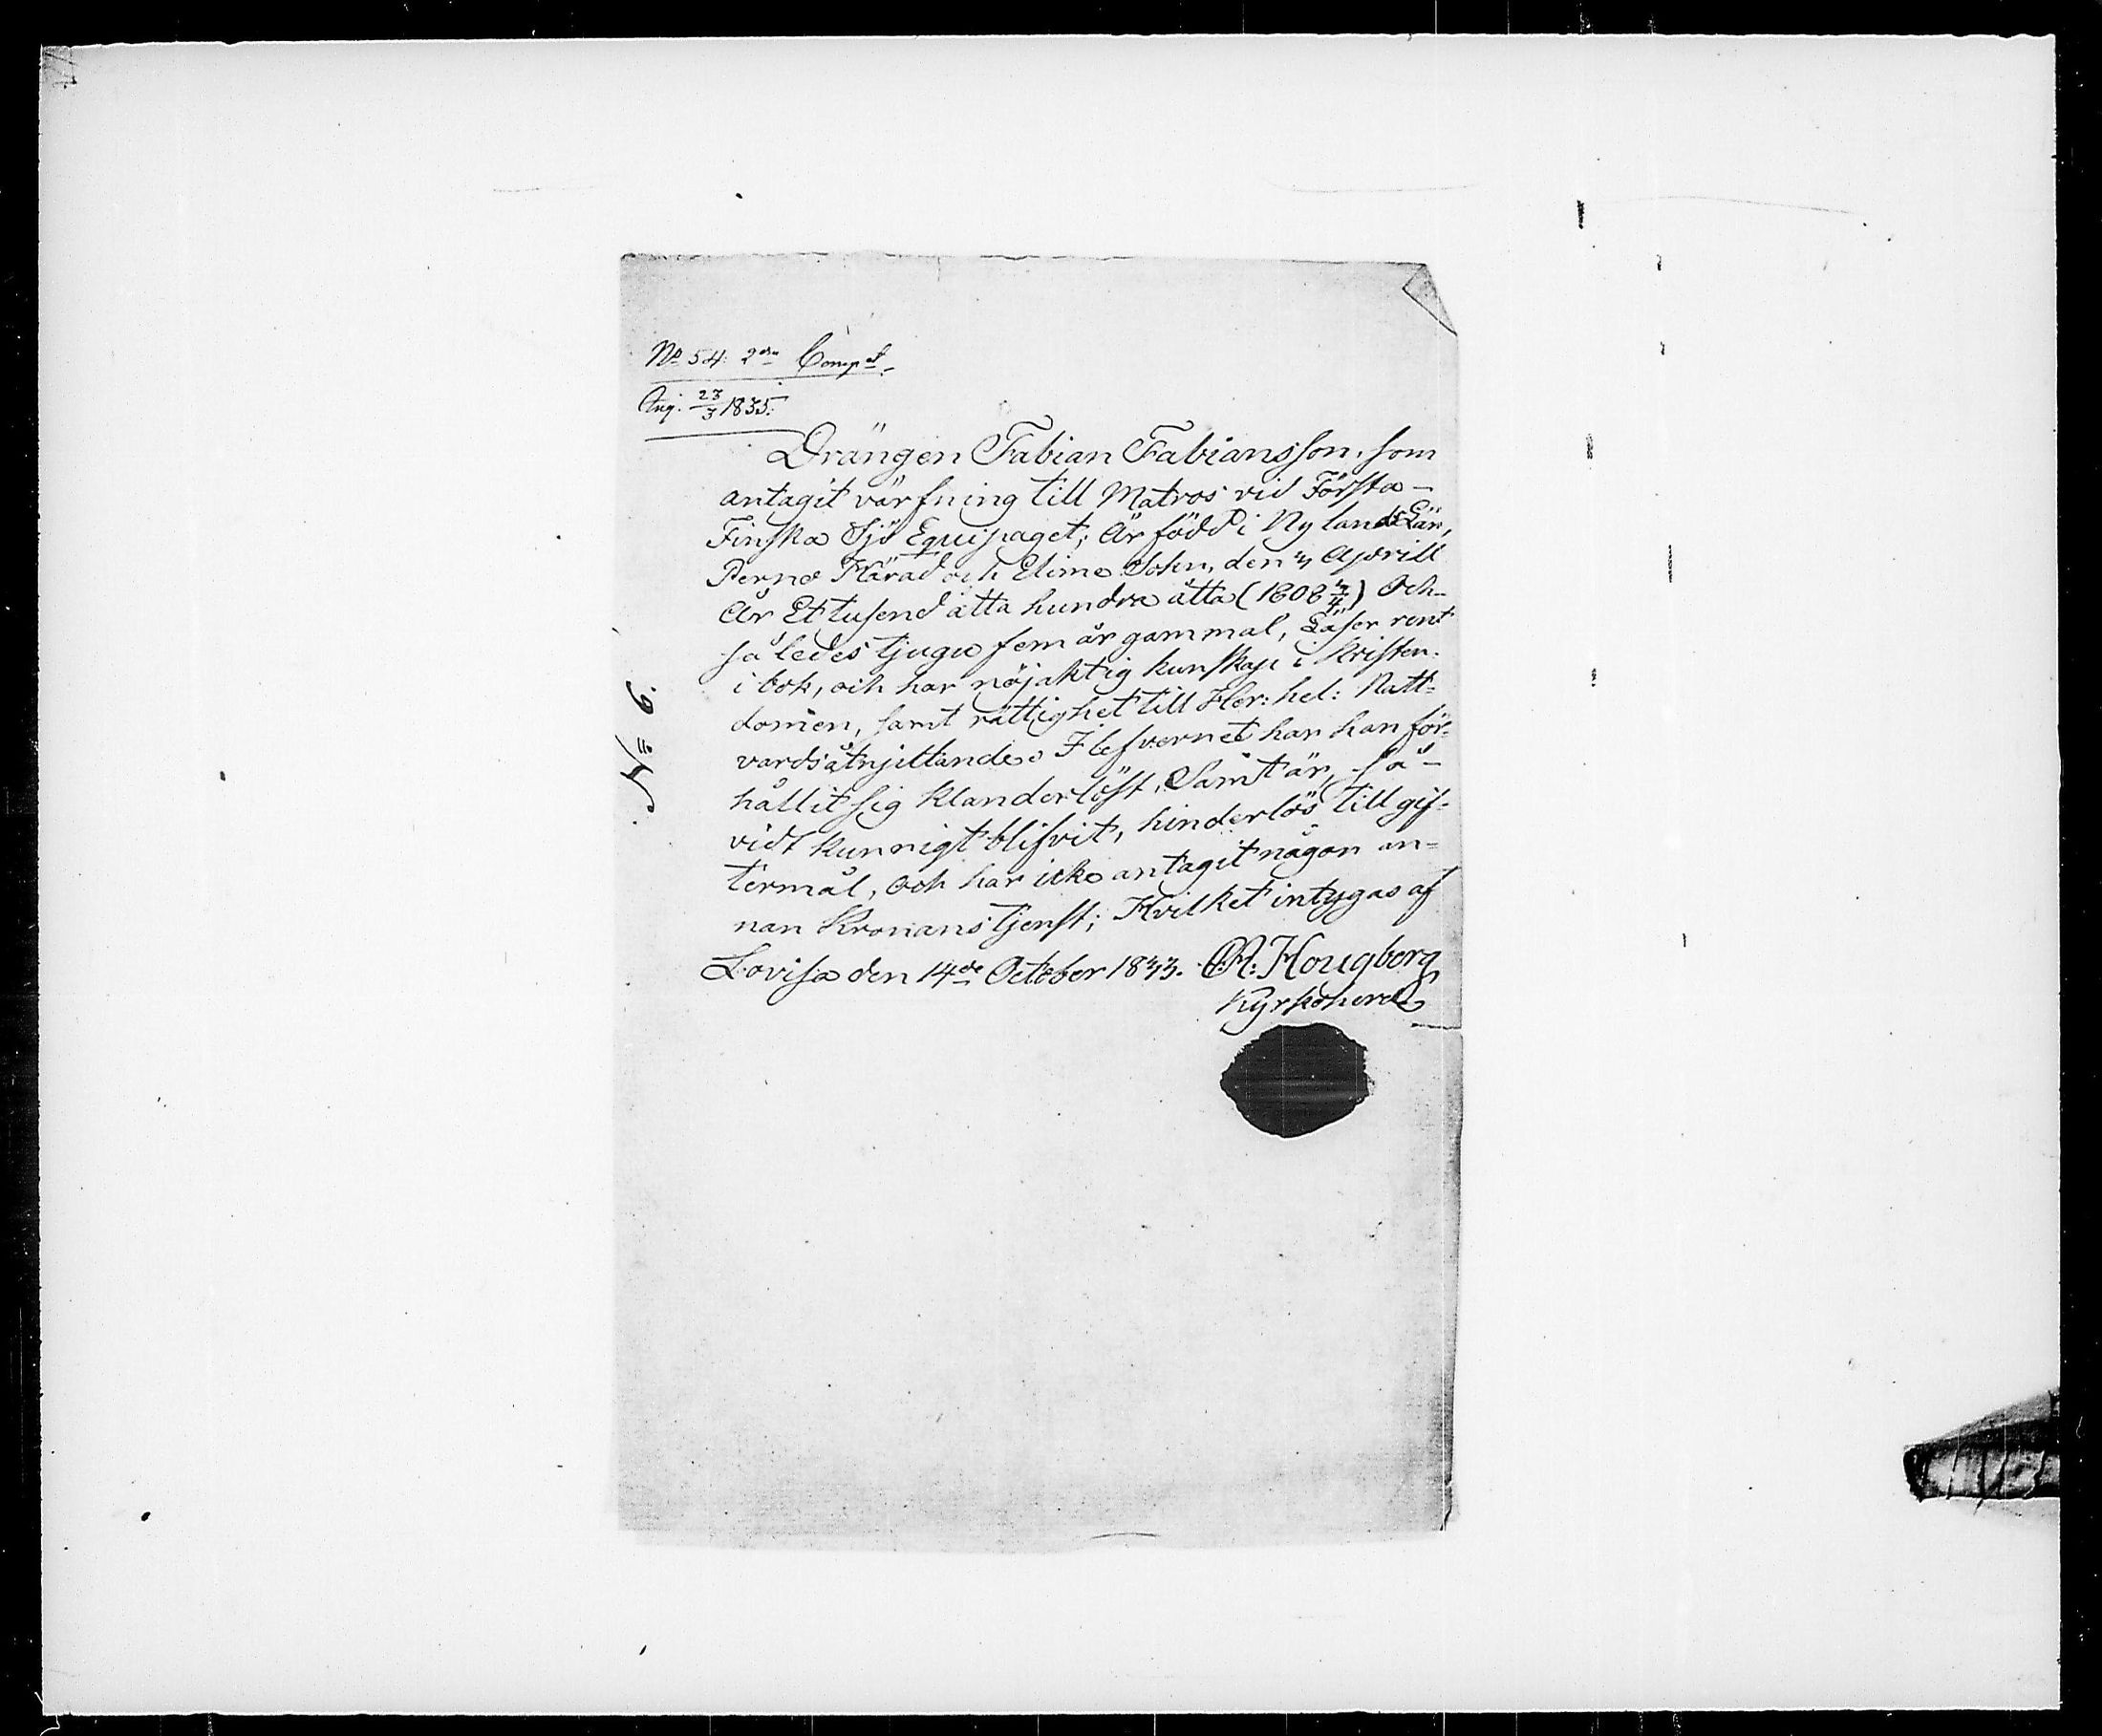 No 54: 2dra Compt
Ang. 23/3 1835.
Drängen Fabian Fabiansson, som
antagit värfning till Matros vid Första
Finska Sjö Equipaget; Är född i Nylands Län,
Perno Härad och Elimo Sokn, den 4 Aprill
År Ettusend åtta hundra åtta (1808 4/4) Och
således tjugu fem år gammal, Läser rent
i bok, och har nöjaktig kunskap i Kristen-
domen, samt rättighet till Her: hel: Natt-
vardsåtnjuttande. I lefvernet har han för-
hållit sig klanderlöst, Samt är, så
vidt kunnigt blifvit, hinderlös till gif-
termål, Och har icke antagit någon an-
nan Kronans tjenst; Hvilket intygas af
Lovisa den 14de October 1833. Hougberg
Kyrkoherde
No 6.